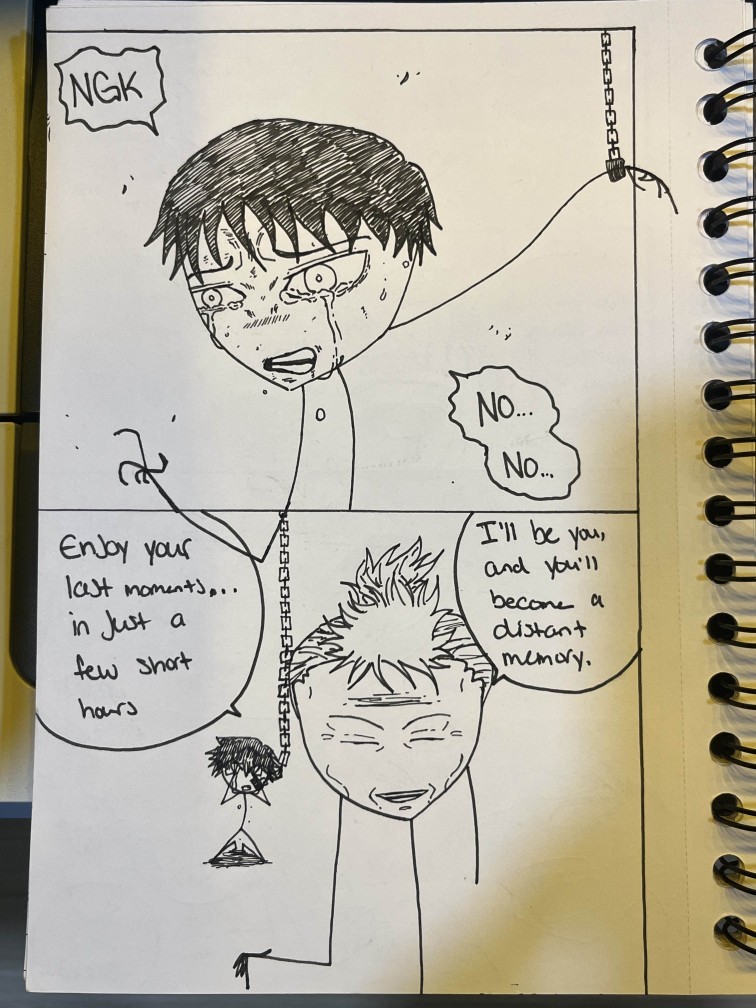 NGK
NO...
NO...
Enjoy your
last moments...
in just a
few short
hours
I'll be you,
and you'll
become a
distant
memory.